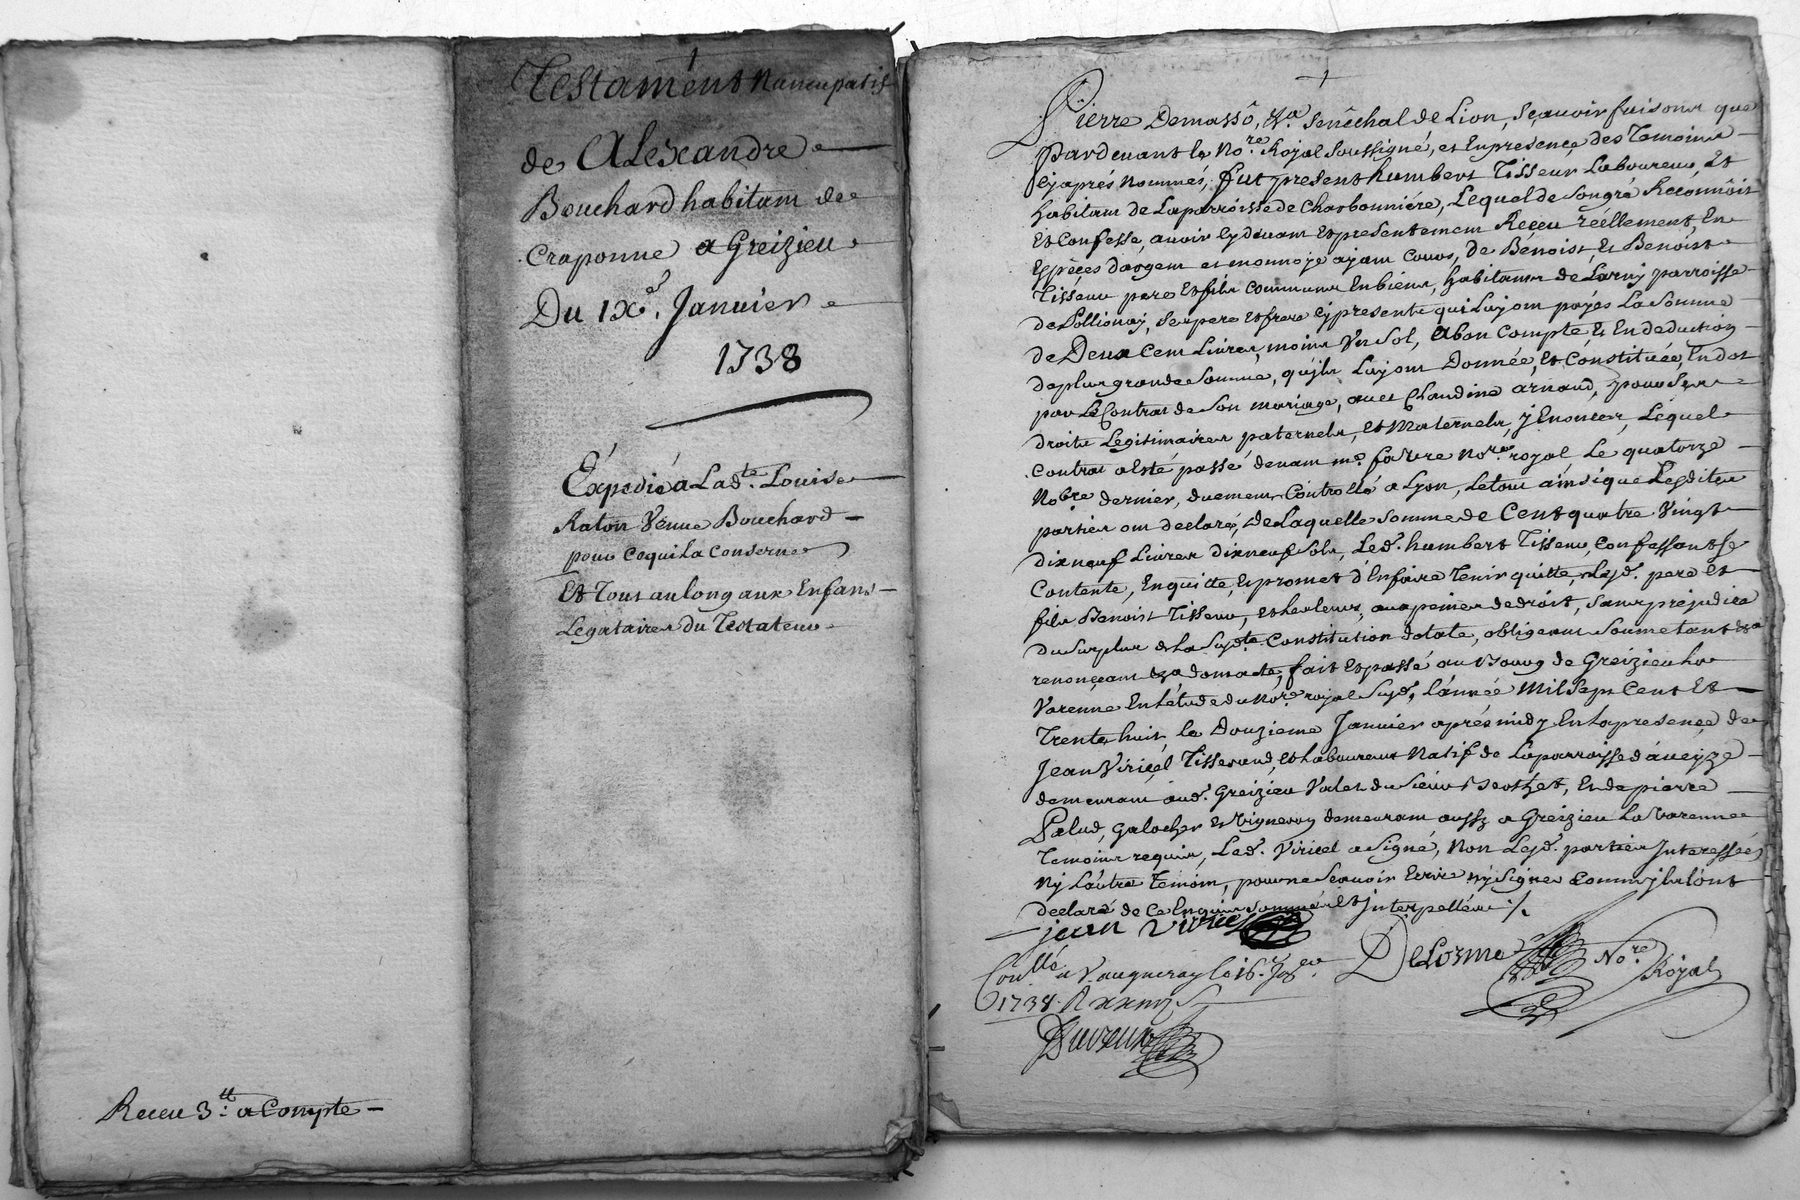 Receu 3.tt a Compte -
Testament Nuncupatif
de Alexandre
Bouchard habitant de
Craponne a Greizieu
Du IXe. Janvier
1738
Expedié a Lad.te Louise
Raton Veuve Bouchard -
pour ce qui La conserne
Et Tout au long aux Enfans -
Legataires du Testateur
Pierre Demassô, &a Senêchal de Lion, Sçavoir faisons que
Pardevant le No.re Royal Soussigné, et En presence des Temoins
cy aprés Nommés, fut present humbert Tisseur Laboureur, Et
habitant de La parroisse de Charbonniére, Lequel de Son gré Reconnôit
Et Confesse, avoir cy devant Et presentement Receu rééllement, En
Espéces d'argent et monnoye ayant Cours, de Bénoist, Et Benoist
Tisseur pere Et fils Communs En biens, habitants de Larny parroisse
de Pollionay, Ses pere Et frere cy presents qui Luy ont payés La Somme
de Deux Cent Livres, moins Un Sol, A bon Compte Et En deduction
de plus grande Somme, qu'jls Luy ont Donnée, Et Constituée, En dot
par Le Contrat de Son mariage, avec Claudine arnaud, pour Ses
droits Legitimaires paternels, Et Maternels, y Enoncer, Lequel
Contrat a Esté passé devant me. favre No.re royal Le quatorze
No.bre dernier, duement Controllé a Lyon, Le tout ainsi que Lesdites
parties ont declaré, de Laquelle Somme de Cent quatre Vingt
dix neuf Livres dix neuf Sols, Led. humbert Tisseur, Confessant Se
Contente, En quitte, Et promet d'En faire Tenir quitte, Lesd. pere Et
fils Benoist Tisseur, Et les Leurs, aux peines de droit, Sans prejudice
du Surplus de La Susd.te Constitution dotale, obligeant Soumetant &a
renonçant &a dont acte, fait Et passé au Bourg de Greizieu La
Varenne En L'étude du No.re royal Susd., L'année Mil Sept Cent Et
Trente huit Le Douzieme Janvier aprés midy En La presence de
Jean Viricel Tisserand, Et Laboureur Natif de La parroisse d'aveyze
demeurant aud. Greizieu Valet du Sieur Berthet, Et de pierre
Palud, Galocher Et Vigneron demeurant aussy a Greizieu La Varenne
Temoins requis, Led. Viricel a Signé, Non Lesd. parties Interessées
Ny L'autre Temoin, pour ne Sçavoir Ecrire ny Signer Comm'jls L'ont
declaré de Ce Enquis Sommés Et Interpellés ./.
jean Viricel
Delorme No.re Royal
Con.llé a Vaugneray le 16.e Jer
1738. R
Duvreux